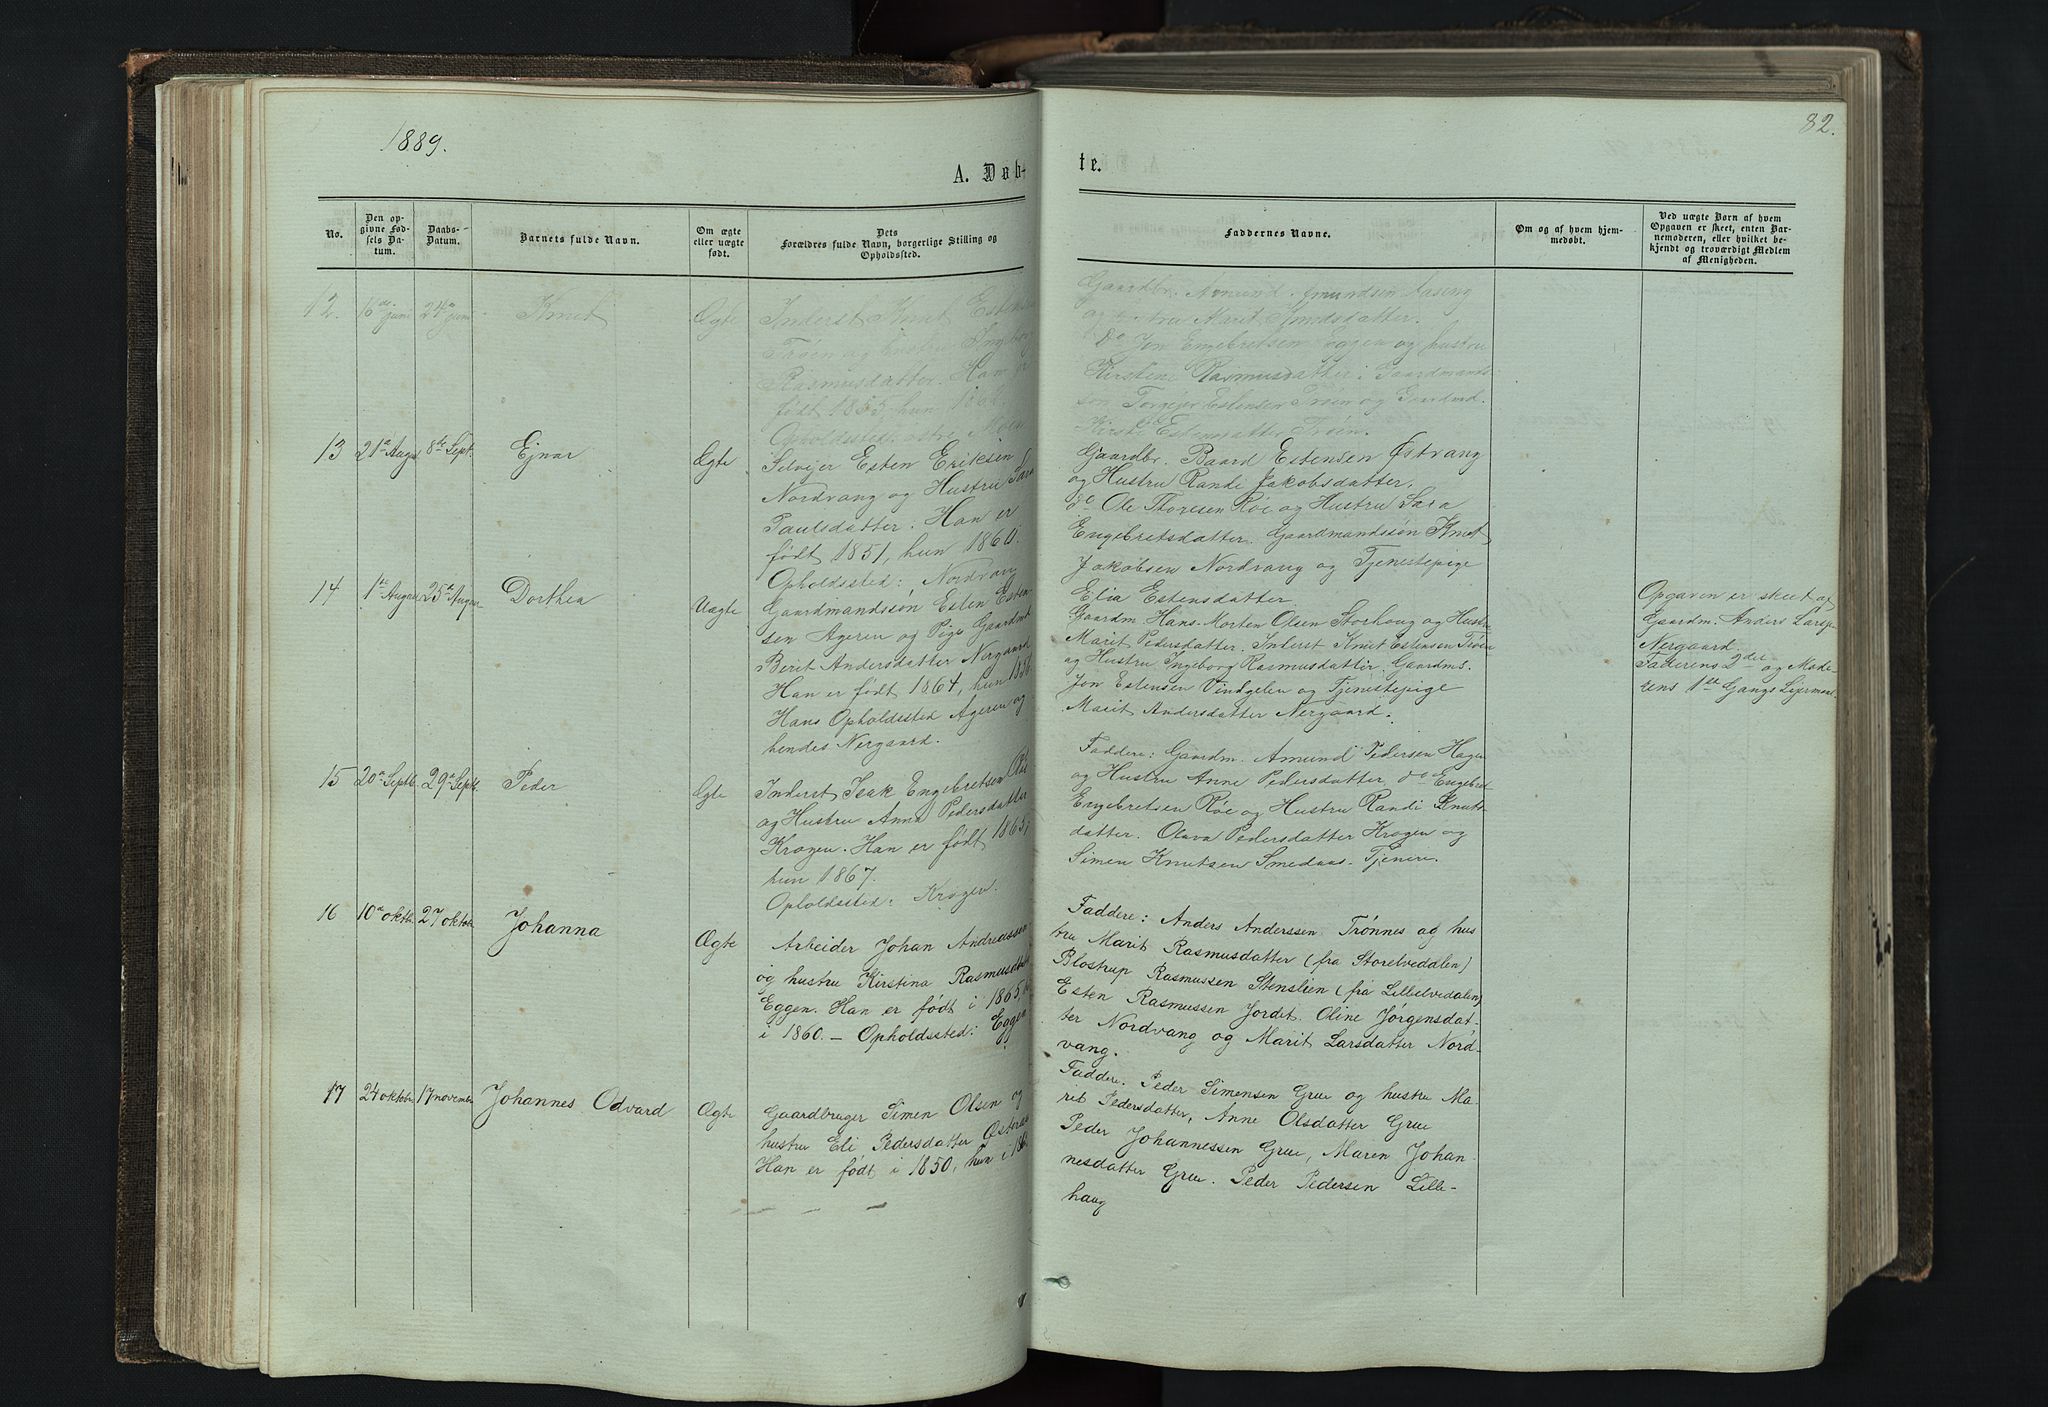 1889.
82.
A. Døb-
te.
No.
Den op-
givne Fød-
sels Da-
tum.
Daabs-
Datum.
Barnets fulde Navn.
Om ægte
eller uægte
født.
Dets
Forældres fulde Navn, borgerlige Stilling og
Opholdssted.
Faddernes Navne.
Om og af hvem hjem-
medøbt.
Ved uægte Børn af hvem
Opgaven er skeet, enten Bar-
nemoderen, eller hvilket be-
kjendt og troværdigt Medlem
af Menigheden.
12. 16de juni 24de juni Knut Ægte
Inderst Knut Estensen
Trøen og Hustru Ingeborg
Rasmusdatter. Han er
født 1855, hun
Opholdssted:
Gaardbr. Amund Amundsen Aaseng
og Hustru Marit
do Jon Engebretsen Eggen og hustru
Kirstine Rasmusdatter. Gaardmands-
søn Torgejer Estensen Trøen og Gaardmd.
Estensdatter Trøen.
13 21de August 8de Sept. Ejnar Ægte
Selvejer Esten Eriksen
Nordvang og Hustru Sara
Paulsdatter. Han er
født 1851, hun 1860.
Opholdssted: Nordvang
Gaardbr. Baard Estensen Østvang
og Hustru Randi Jakobsdatter.
do Ole Thoresen Røe og Hustru Sara
Engebretsdatter. Gaardmandssøn Knut
Jakobsen Nordvang og Tjenestepige
Elia Estensdatter
14 1ste August 25de August Dorthea Uægte
Gaardmandssøn Esten Esten-
sen Ageren og Pige Gaardmd.
Berit Andersdatter Nergaard
Han er født 1864, hun 1856
Hans Opholdssted Ageren og
hendes Nergaard.
Gaardm. Hans-Morten Olsen Storhaug og Hustru
Marit Pedersdatter. Inderst Knut Estensen Trøen
og Hustru Ingeborg Rasmusdatter. Gaardms.
Jon Estensen Vindgelen og Tjenestepige
Marit Andersdatter Nergaard.
Opgaven er skeet af
Gaardm. Anders Larsen
Nergaard
Faderens 2det og Mode-
rens 1ste Gangs Lejermaal.
15 20de Septb. 29de Septb. Peder Ægte
Inderst Isak Engebretsen Røe
og Hustru Anna Pedersdatter
Krogen. Han er født 1865,
hun 1867.
Opholdssted: Krogen.
Faddere: Gaardm. Amund Pedersen Hagen
og Hustru Anne Pedersdatter do Engebret
Engebretsen Røe og Hustru Randi Knuts-
datter. Oluva Pedersdatter Krogen og
Simen Knutsen Smedaas-Tjenere.
16 10de oktbr. 27 oktobr Johanna Ægte
Arbeider Johan Andreassen
og hustru Kirstina Rasmusdatter
Eggen. Han er født i 1865,
i 1860. - Opholdssted: Eggen
Faddere: Anders Anderssen Trønnes og hus
tru Marit Rasmusdatter (fra Storelvedalen)
Blostrup Rasmussen Stenslien (fra Lilleelvedalen)
Esten Rasmussen Jordet. Oline Jørgensdat-
ter Nordvang og Marit Larsdatter Nord-
vang.
17 24 oktobr 17 november Johannes Odvard Ægte
Gaardbruger Simen Olsen og
hustru Eli Pedersdatter
Han er født i 1850, hun i
Faddere. Peder Simensen Grue og hustru Ma-
rit Pedersdatter, Anne Olsdatter Grue
Peder Johannessen Grue, Maren Johan-
nesdatter Grue. Peder Pedersen Lille-
haug